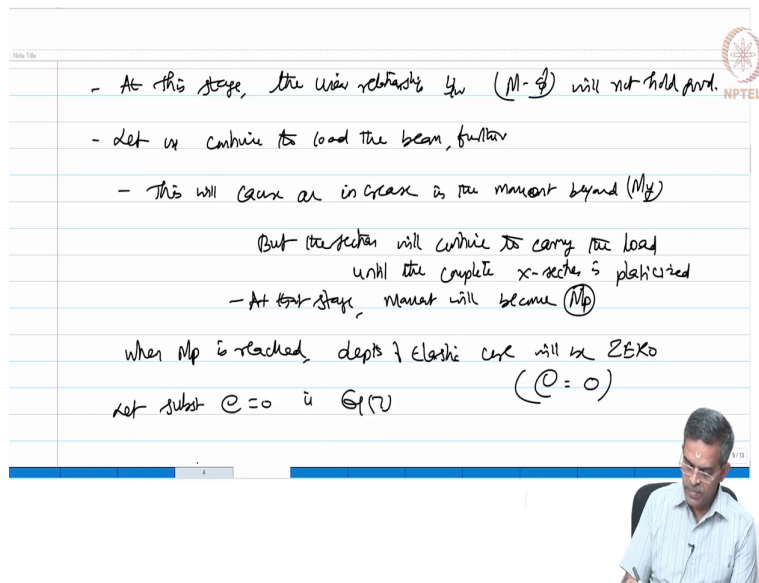 Note Title
NPTEL
- At this stage, the linear relationship b/w (M-ϕ) will not hold good.
- Let us continue to load the beam, further
- This will cause an increase in the moment beyond (My)
But the section will continue to carry the load
until the complete x-section is plasticized
- At that stage, moment will become (Mp)
When Mp is reached, depth of Elastic core will be ZERO
(e = 0)
Let subst e = 0 in Eq(7)
5/13
4